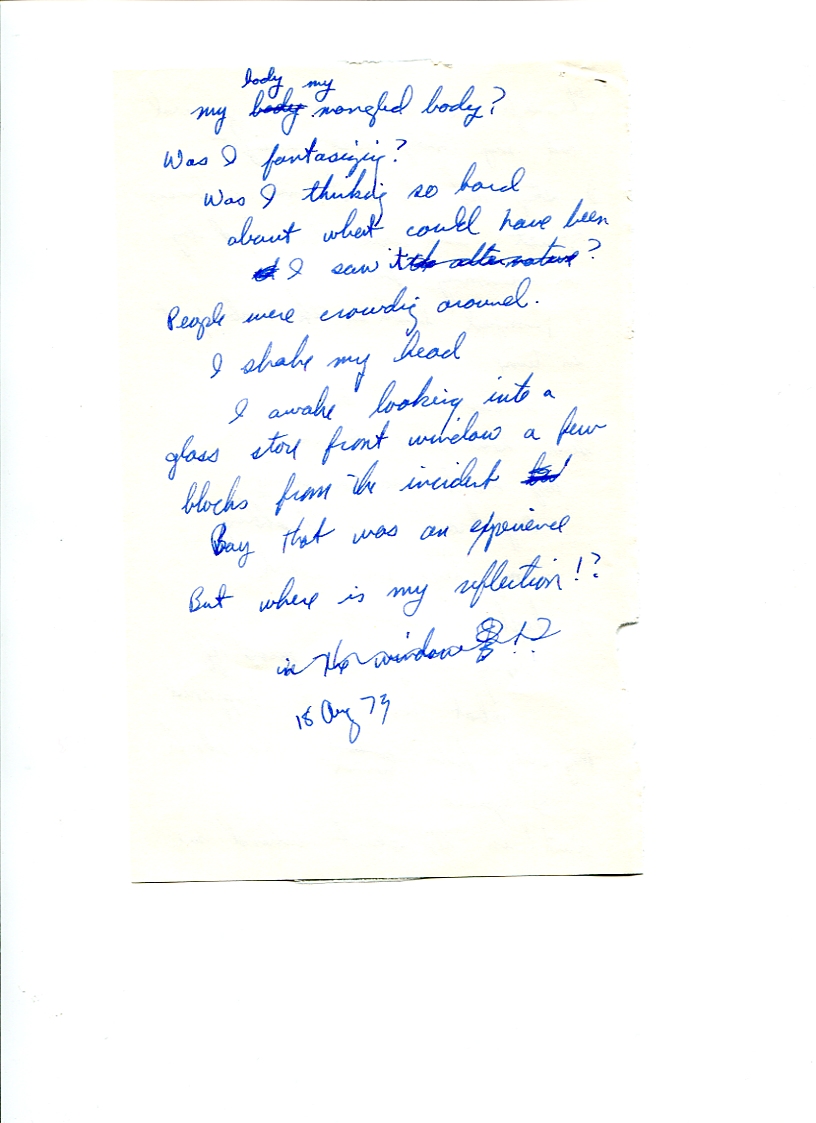 body my
my body mangled body?
Was I fantasizing?
Was I thinking so hard
about what could have been
I saw it the alternative?
People were crowding around.
I shake my head
I awake looking into a
glass store front window a few
blocks from the incident
Boy that was an experience
But where is my reflection!?
in the window !?
18 Aug 79